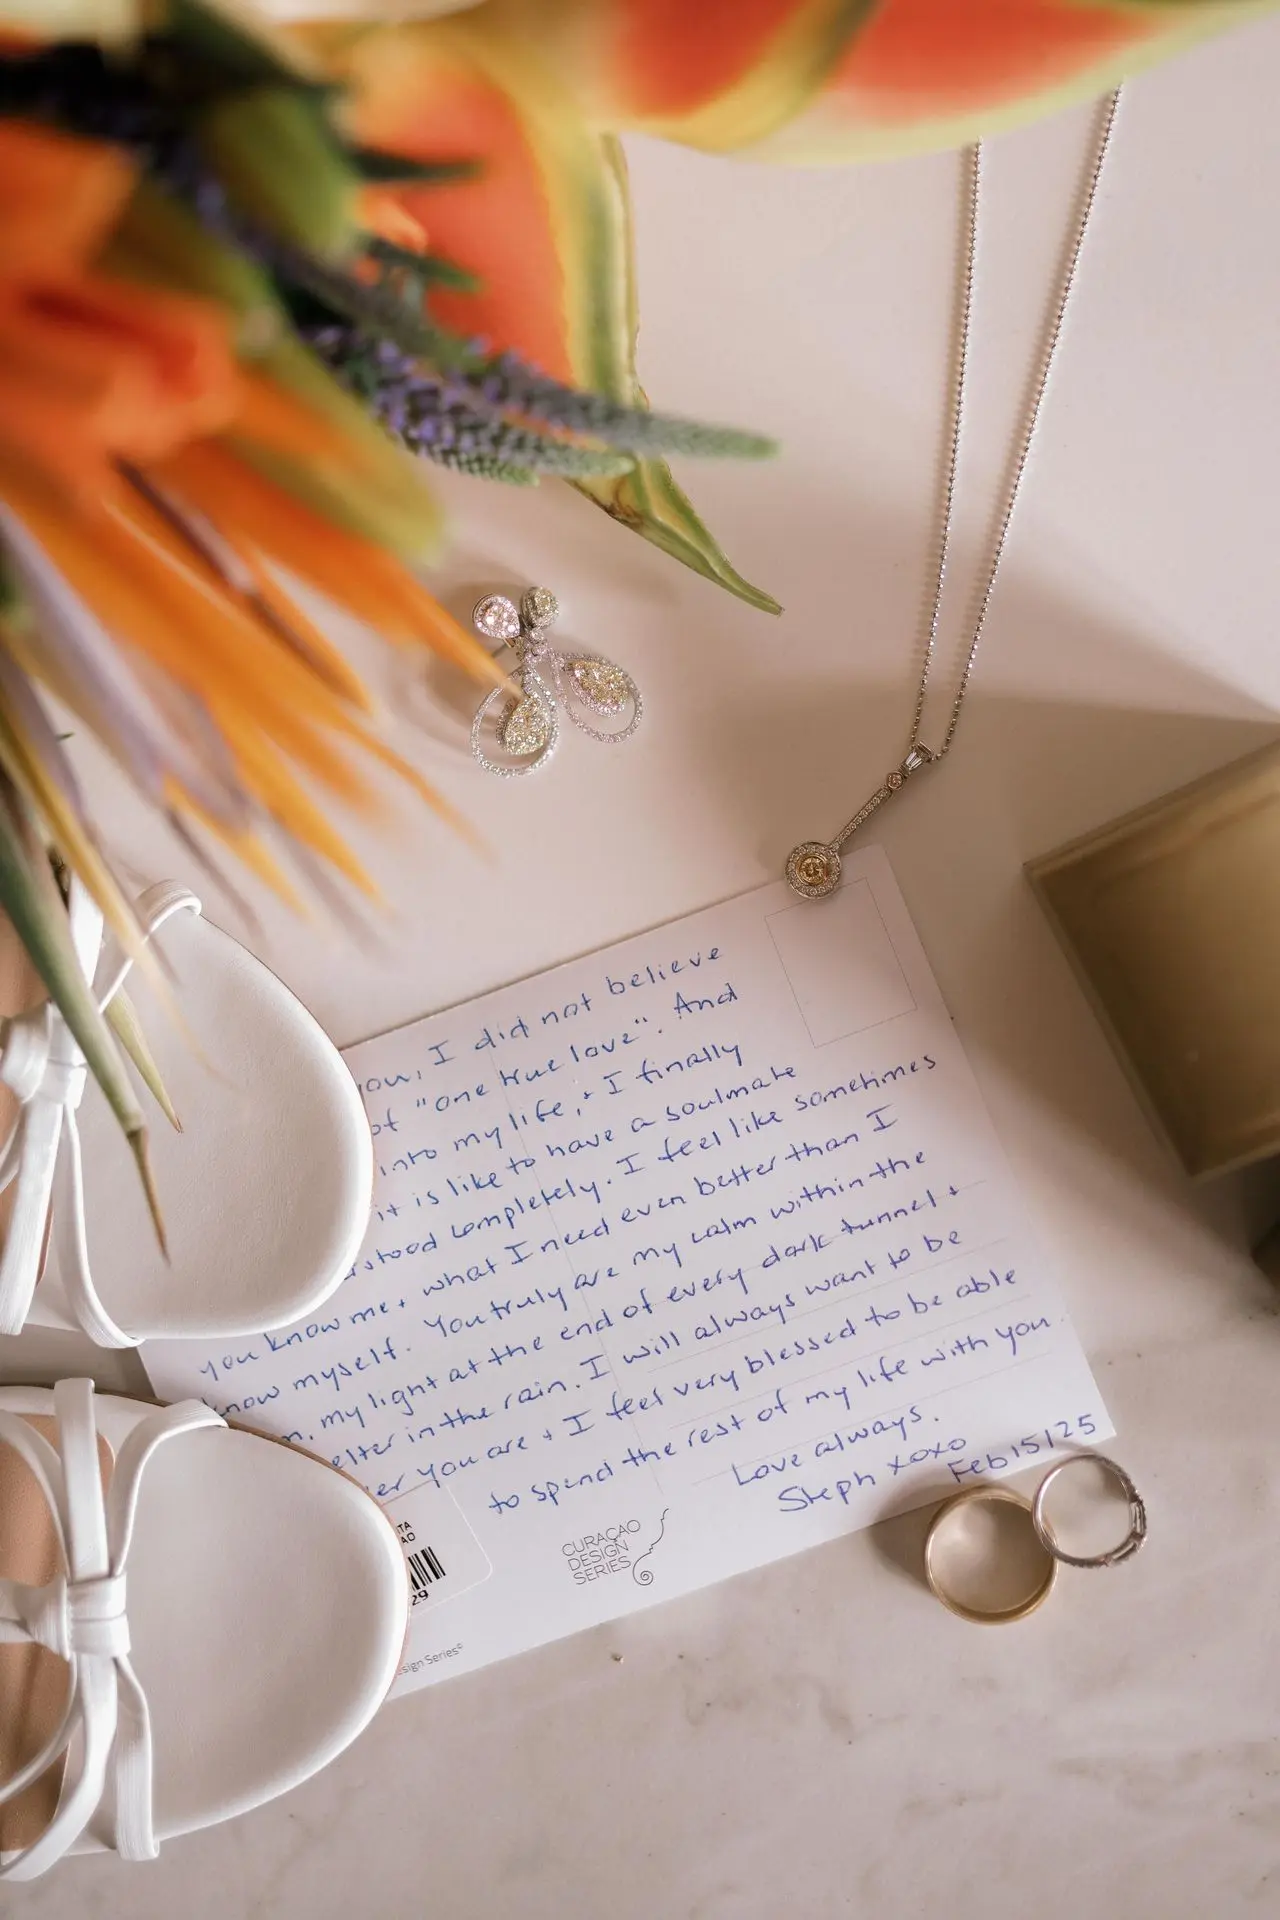 you, I did not believe
of "one true love". And
into my life, + I finally
it is like to have a soulmate
completely. I feel like sometimes
you know me + what I need even better than I
know myself. You truly are my calm within the
my light at the end of every dark tunnel +
in the rain. I will always want to be
you are + I feel very blessed to be able
to spend the rest of my life with you.
Love always.
Steph xoxo
Feb 15/25
CURAÇAO
DESIGN
SERIES
29
Series©